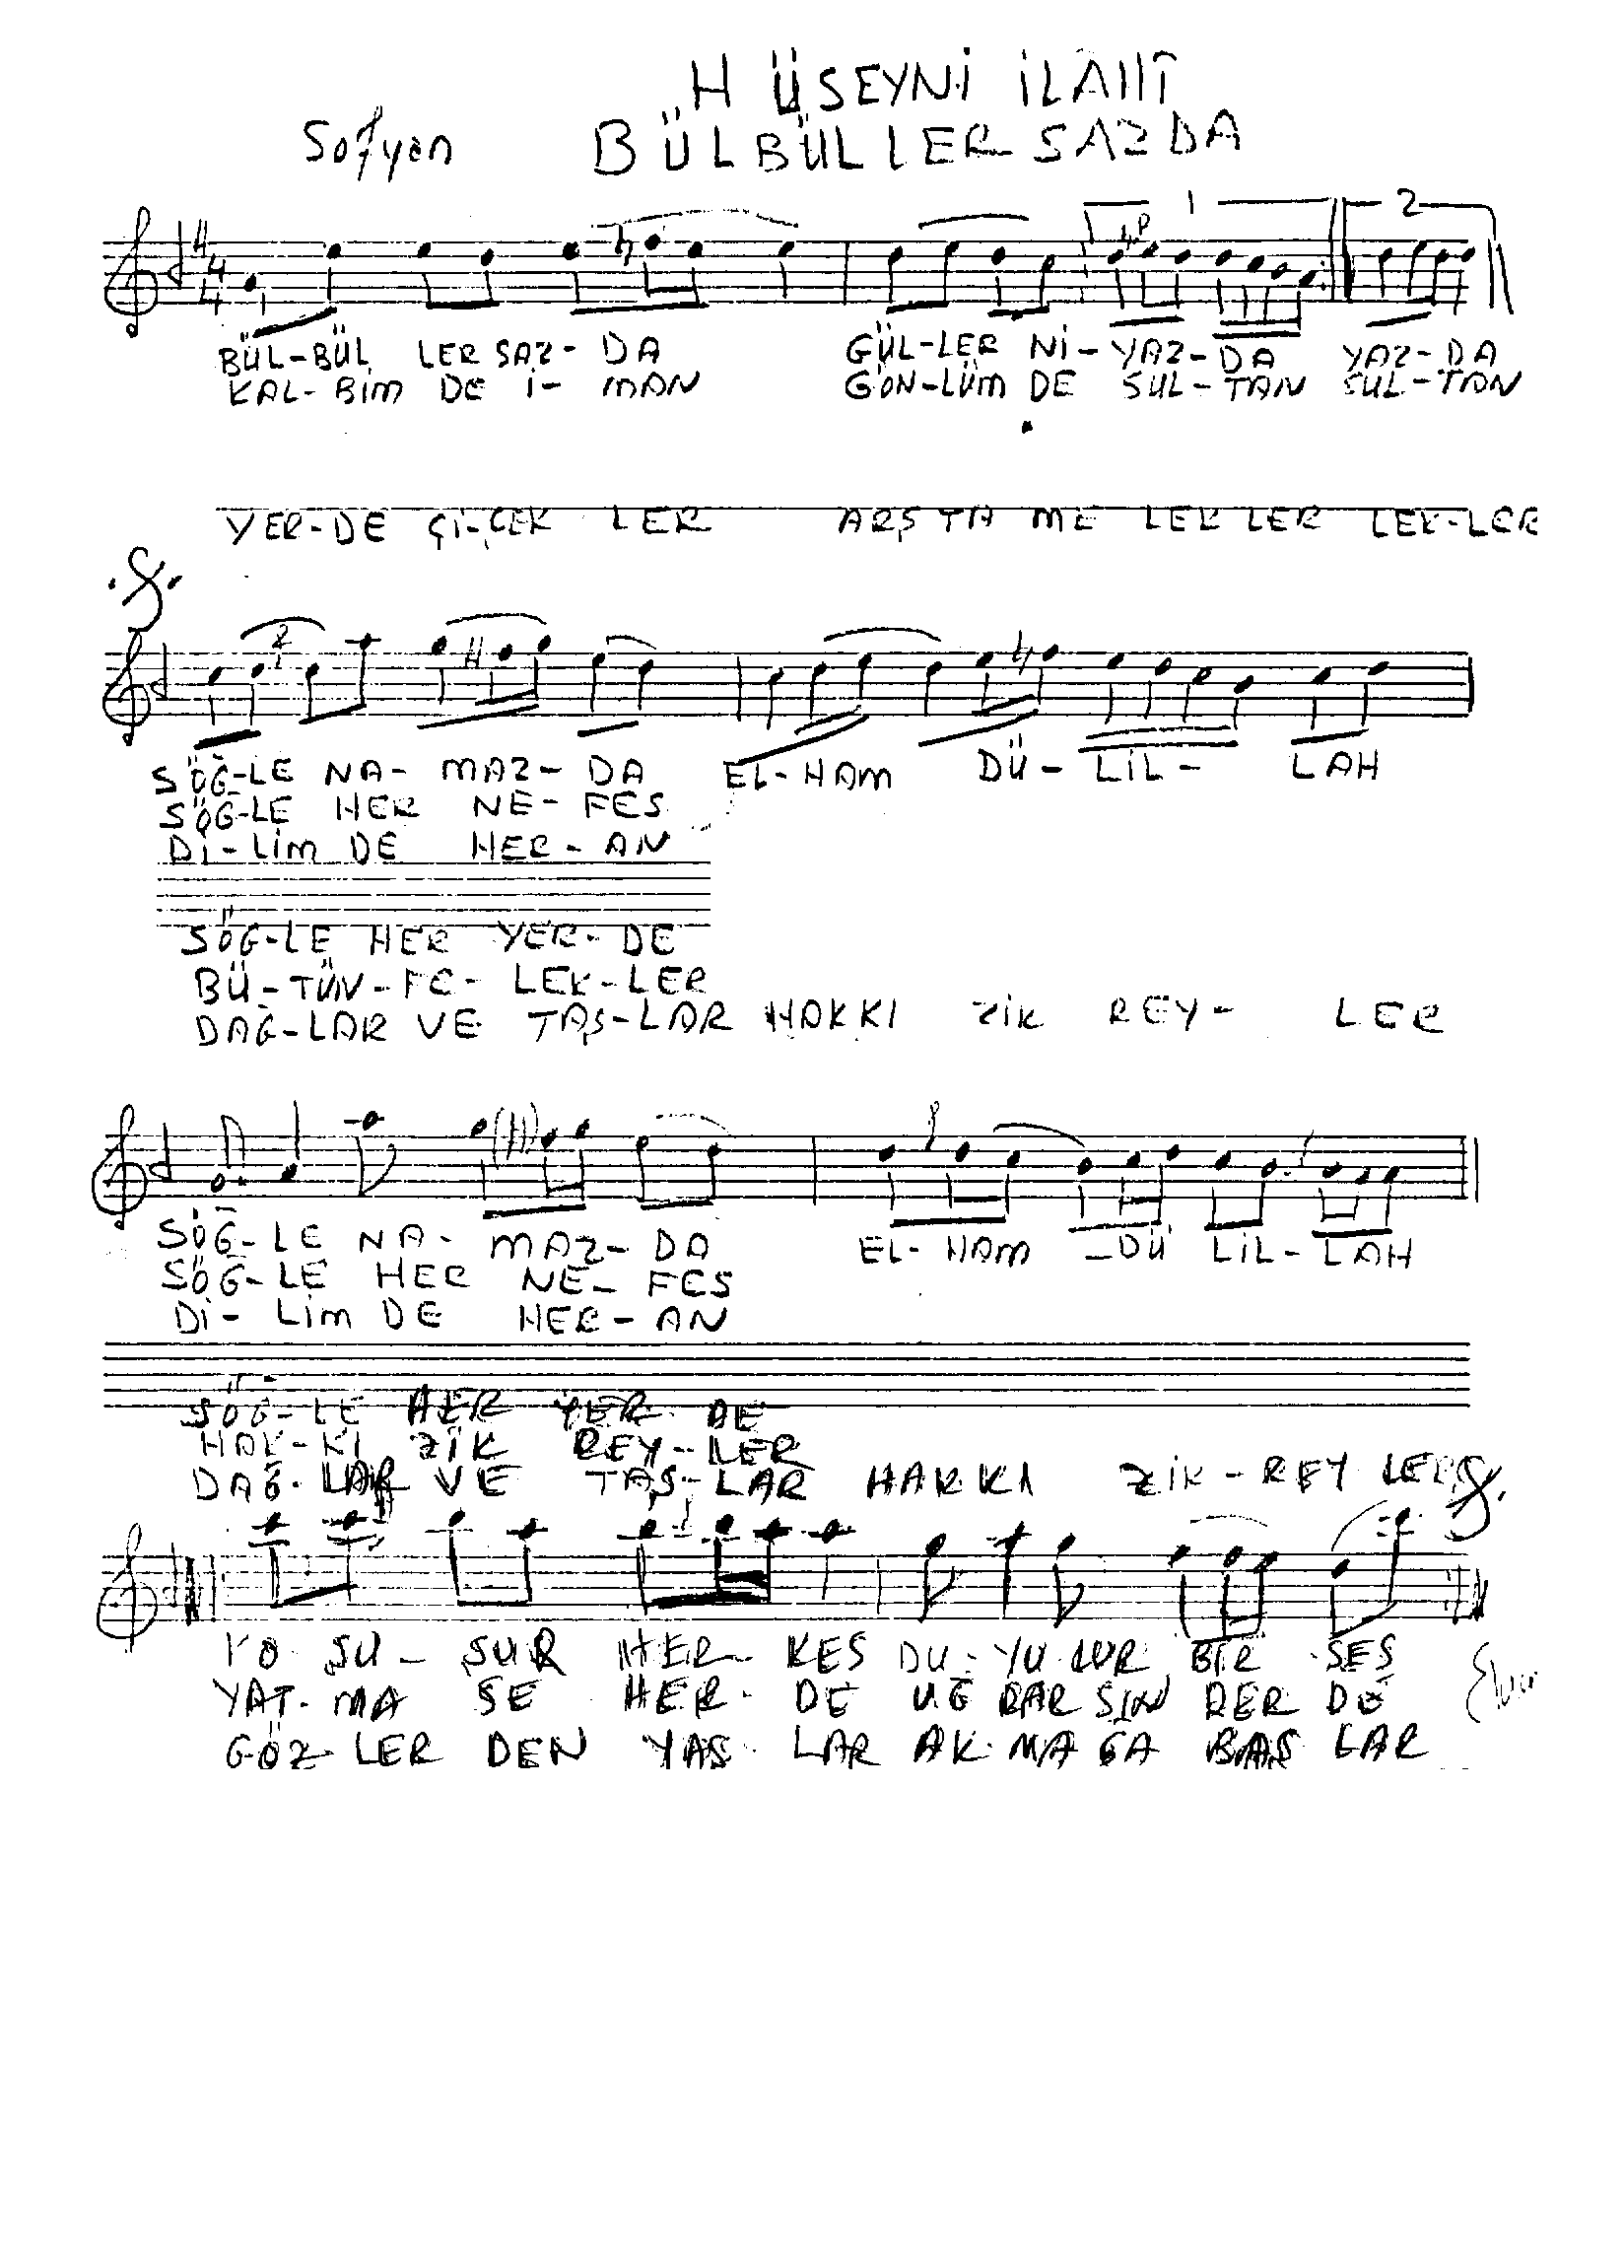 HÜSEYNİ İLAHÎ
Sofyan BÜLBÜLLER SAZDA
1 2
4 4
BÜL-BÜL LER SAZ-DA GÜL-LER Nİ-YAZ-DA YAZ-DA
KAL-BİM DE İ-MAN GÖN-LÜM DE SUL-TAN SUL-TAN
YER-DE Çİ-ÇEK LER ARŞ TA ME LEK LER LEK-LER
SÖĞ-LE NA-MAZ-DA EL-HAM DÜ-LİL-LAH
SÖĞ-LE HER NE-FES
Dİ-LİM DE HER-AN
SÖG-LE HER YER-DE
BÜ-TÜN-FE-LEK-LER
DAĞ-LAR VE TAŞ-LAR HAKKI ZİK REY-LER
SÖĞ-LE NA-MAZ-DA EL-HAM-DÜ LİL-LAH
SÖĞ-LE HER NE-FES
Dİ-LİM DE HER-AN
SÖĞ-LE HER YER-DE
HAK-KI ZİK REY-LER
DAĞ-LAR VE TAŞ-LAR HAKKI ZİK-REY LER
SU-SUR HER-KES DU-YU-LUR BİR SES
YAT-MA SE HER-DE UĞ RAR SIN DER DE
GÖZ-LER DEN YAŞ-LAR AK-MA ĞA BAŞ LAR